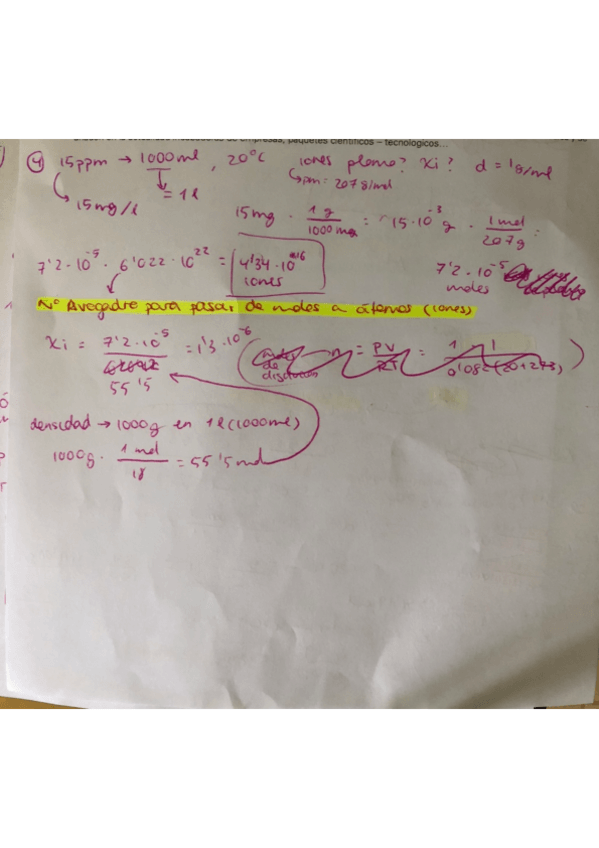 empresas, paquetes científicos – tecnológicos...
4 15ppm → 1000ml, 20ºC iones plomo? Xi? d = 1g/ml
↳ pm: 207g/mol
15mg/l = 1l
15mg · 1g/1000mg = 15·10⁻³g · 1mol/207g =
7'2·10⁻⁵ · 6'022·10²² = 4'34·10¹⁶ iones
7'2·10⁻⁵ moles
Nº Avogadro para pasar de moles a átomos (iones)
Xi = 7'2·10⁻⁵/55'5 = 1'3·10⁻⁶ (moles de disolución n = PV/RT = 1 · 1/0'082·(20+273))
densidad → 1000g en 1l (1000ml)
1000g · 1mol/18 = 55'5mol